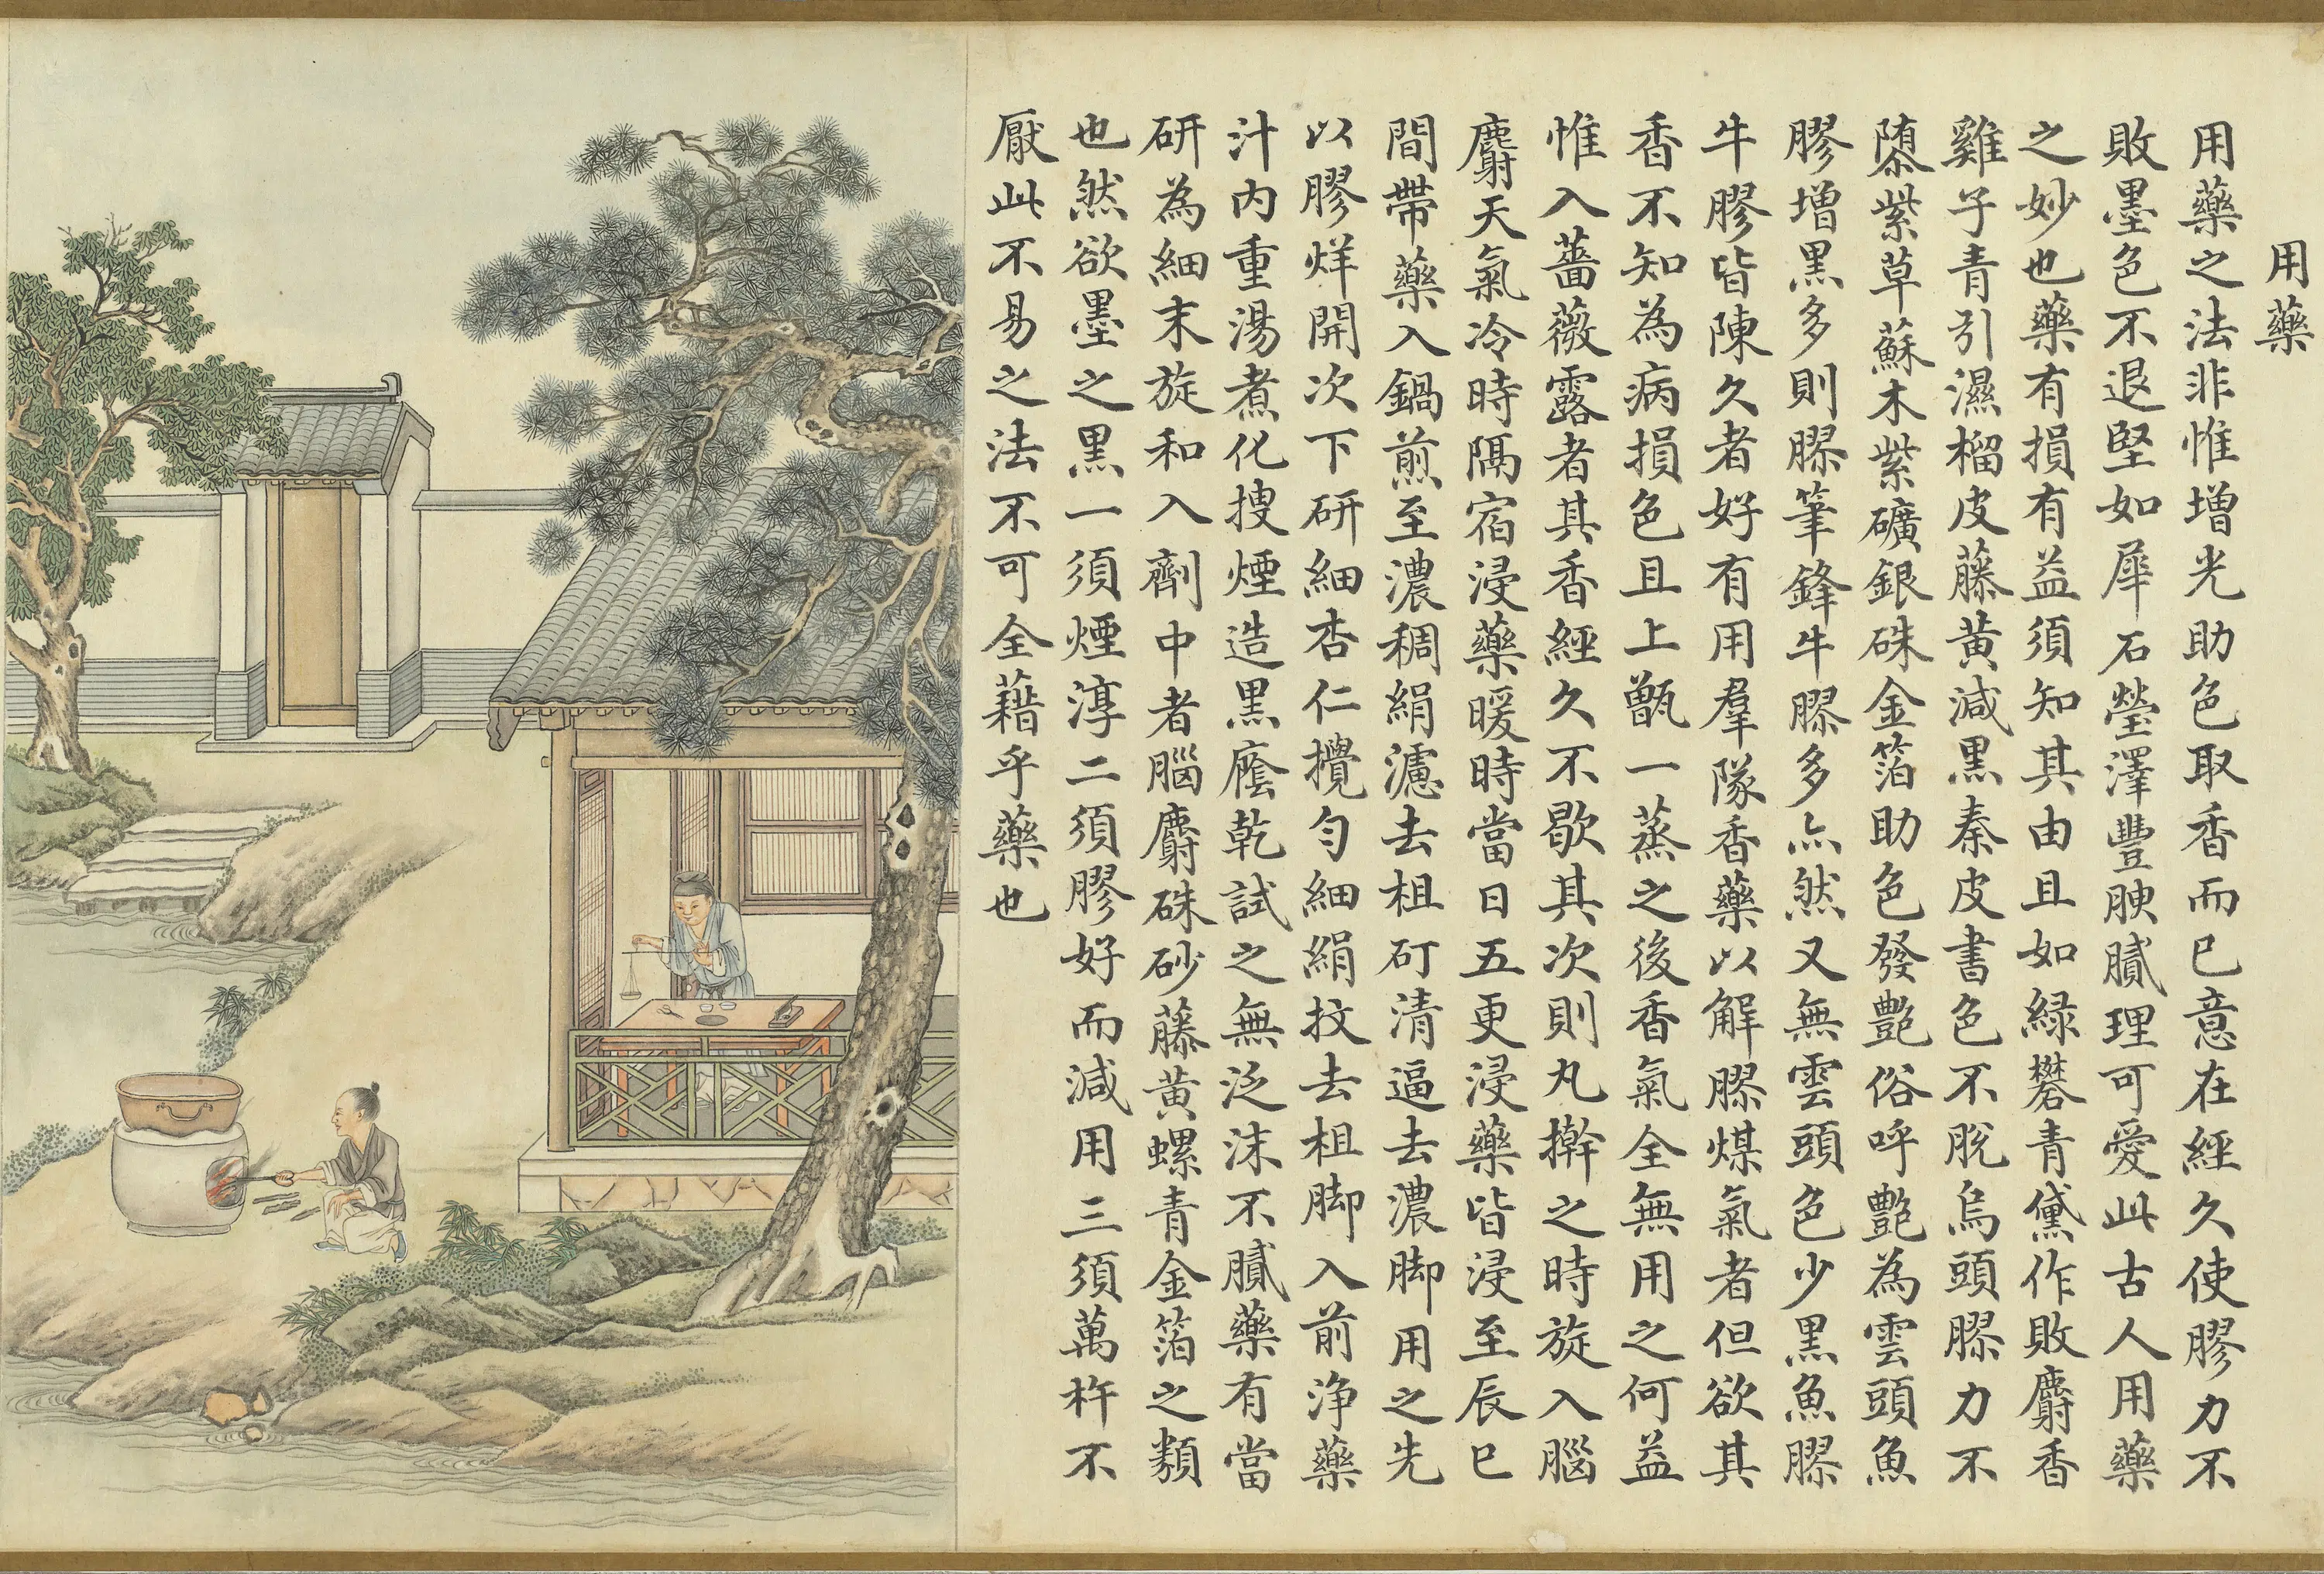 用藥
用藥之法非惟增光助色取香而已意在經久使膠力不
敗墨色不退堅如犀石瑩澤豐腴膩理可愛此古人用藥
之妙也藥有損有益須知其由且如綠礬青黛作敗麝香
雞子青引濕榴皮藤黃減黑秦皮書色不脫烏頭膠力不
隳紫草蘇木紫礦銀硃金箔助色發艷俗呼艷為雲頭魚
膠增黑多則膠筆鋒牛膠多亦然又無雲頭色少黑魚膠
牛膠皆陳久者好有用羣隊香藥以解膠煤氣者但欲其
香不知為病損色且上甑一蒸之後香氣全無用之何益
惟入薔薇露者其香經久不歇其次則丸擀之時旋入腦
麝天氣冷時隔宿浸藥暖時當日五更浸藥皆浸至辰巳
間帶藥入鍋煎至濃稠絹濾去柤矴清逼去濃脚用之先
以膠烊開次下研細杏仁攪勻細絹抆去柤脚入前淨藥
汁內重湯煮化搜煙造黑廕乾試之無泛沫不膩藥有當
研為細末旋和入劑中者腦麝硃砂藤黃螺青金箔之類
也然欲墨之黑一須煙淳二須膠好而減用三須萬杵不
厭此不易之法不可全藉乎藥也